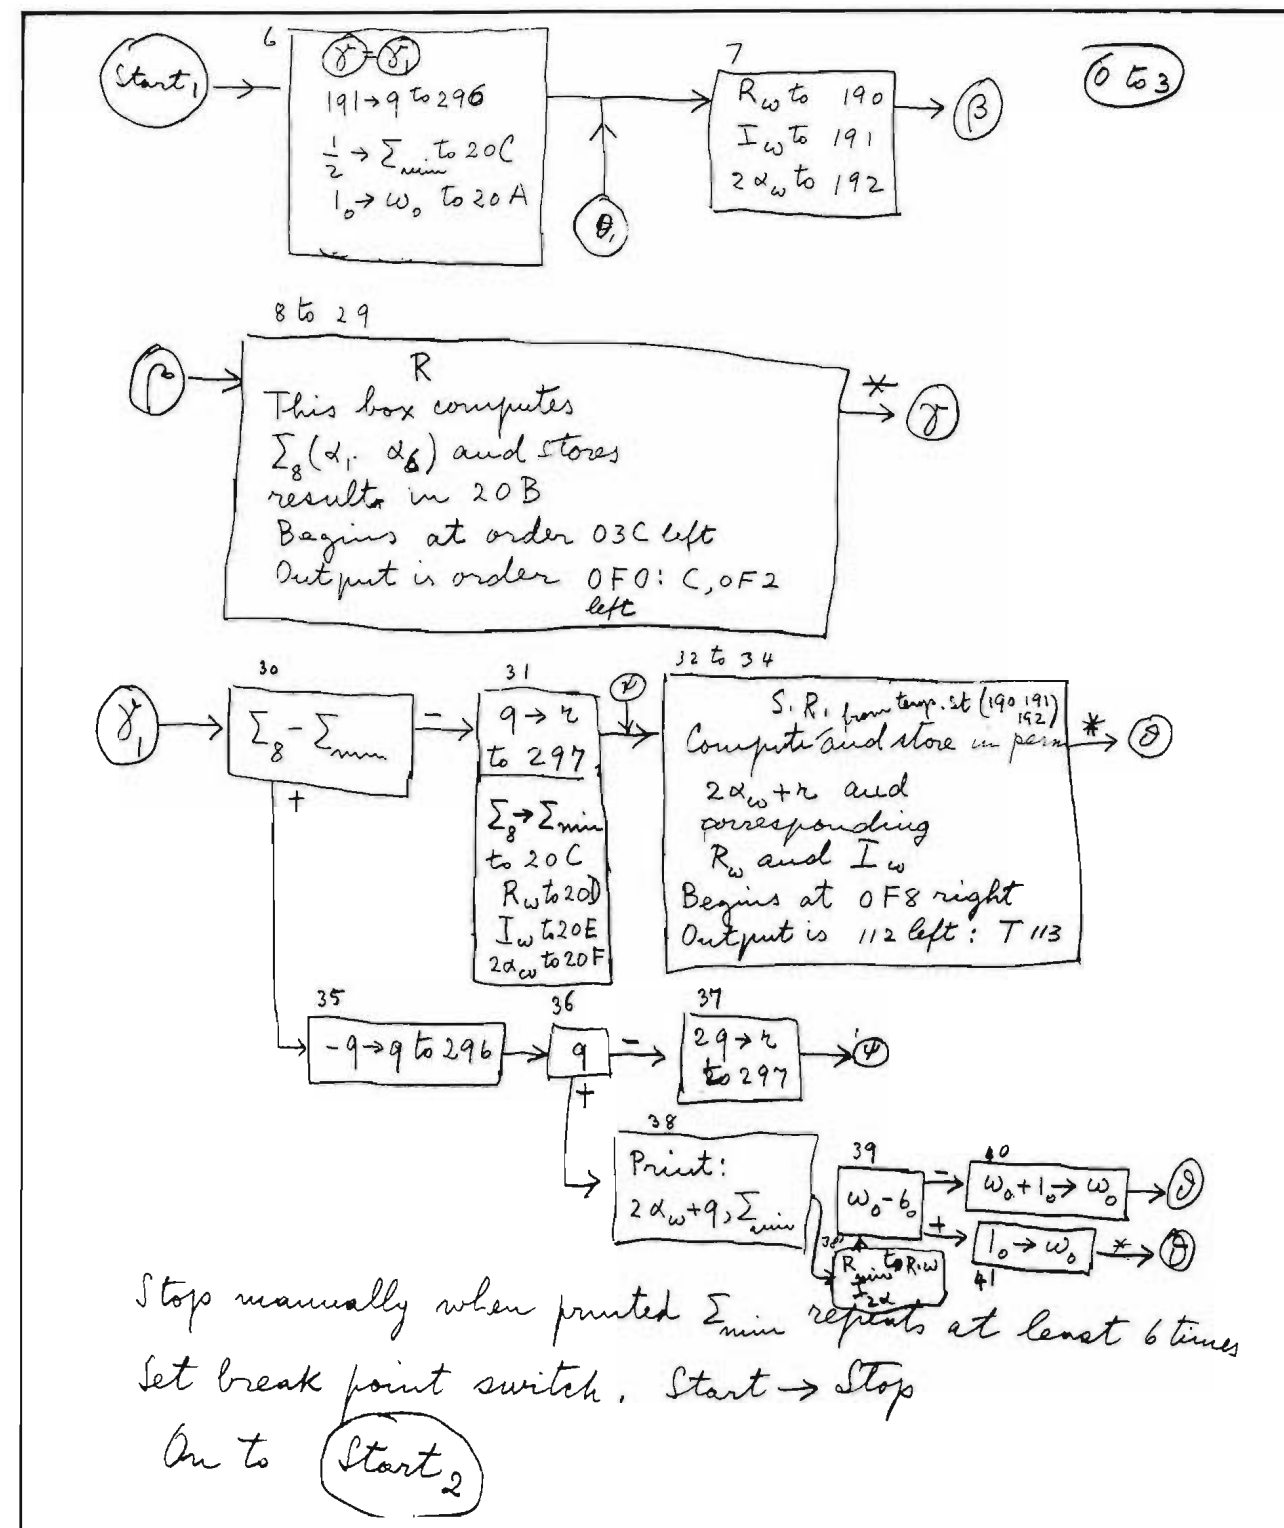 6
Start₁
γ = γ₁
191→q to 296
½ → Σmin to 20C
1₀→ω₀ to 20A
θ₁
7
Rω to 190
Iω to 191
2αω to 192
β
0 to 3
8 to 29
β
R
This box computes
Σ₈(α₁. α₆) and stores
results in 20B
Begins at order 03C left
Output is order 0F0: C, 0F2
left
*
γ
γ₁
30
Σ₈ - Σmin
−
+
31
q → r
to 297
Σ₈→Σmin
to 20C
Rω to 20D
Iω to 20E
2αω to 20F
ψ
32 to 34
S.R. from temp. st (190 191
192)
Compute and store in perm
2αω+r and
corresponding
Rω and Iω
Begins at 0F8 right
Output is 112 left: T 113
*
θ
35
-q→q to 296
36
q
−
+
37
2q→r
to 297
ψ
38
Print:
2αω+q, Σmin
38'
Rmin to R,ω
I
2α
39
ω₀-6₀
−
+
40
ω₀+1₀→ω₀
θ
1₀→ω₀
41
*
θ
Stop manually when printed Σmin repeats at least 6 times
Set break point switch. Start → Stop
On to Start₂